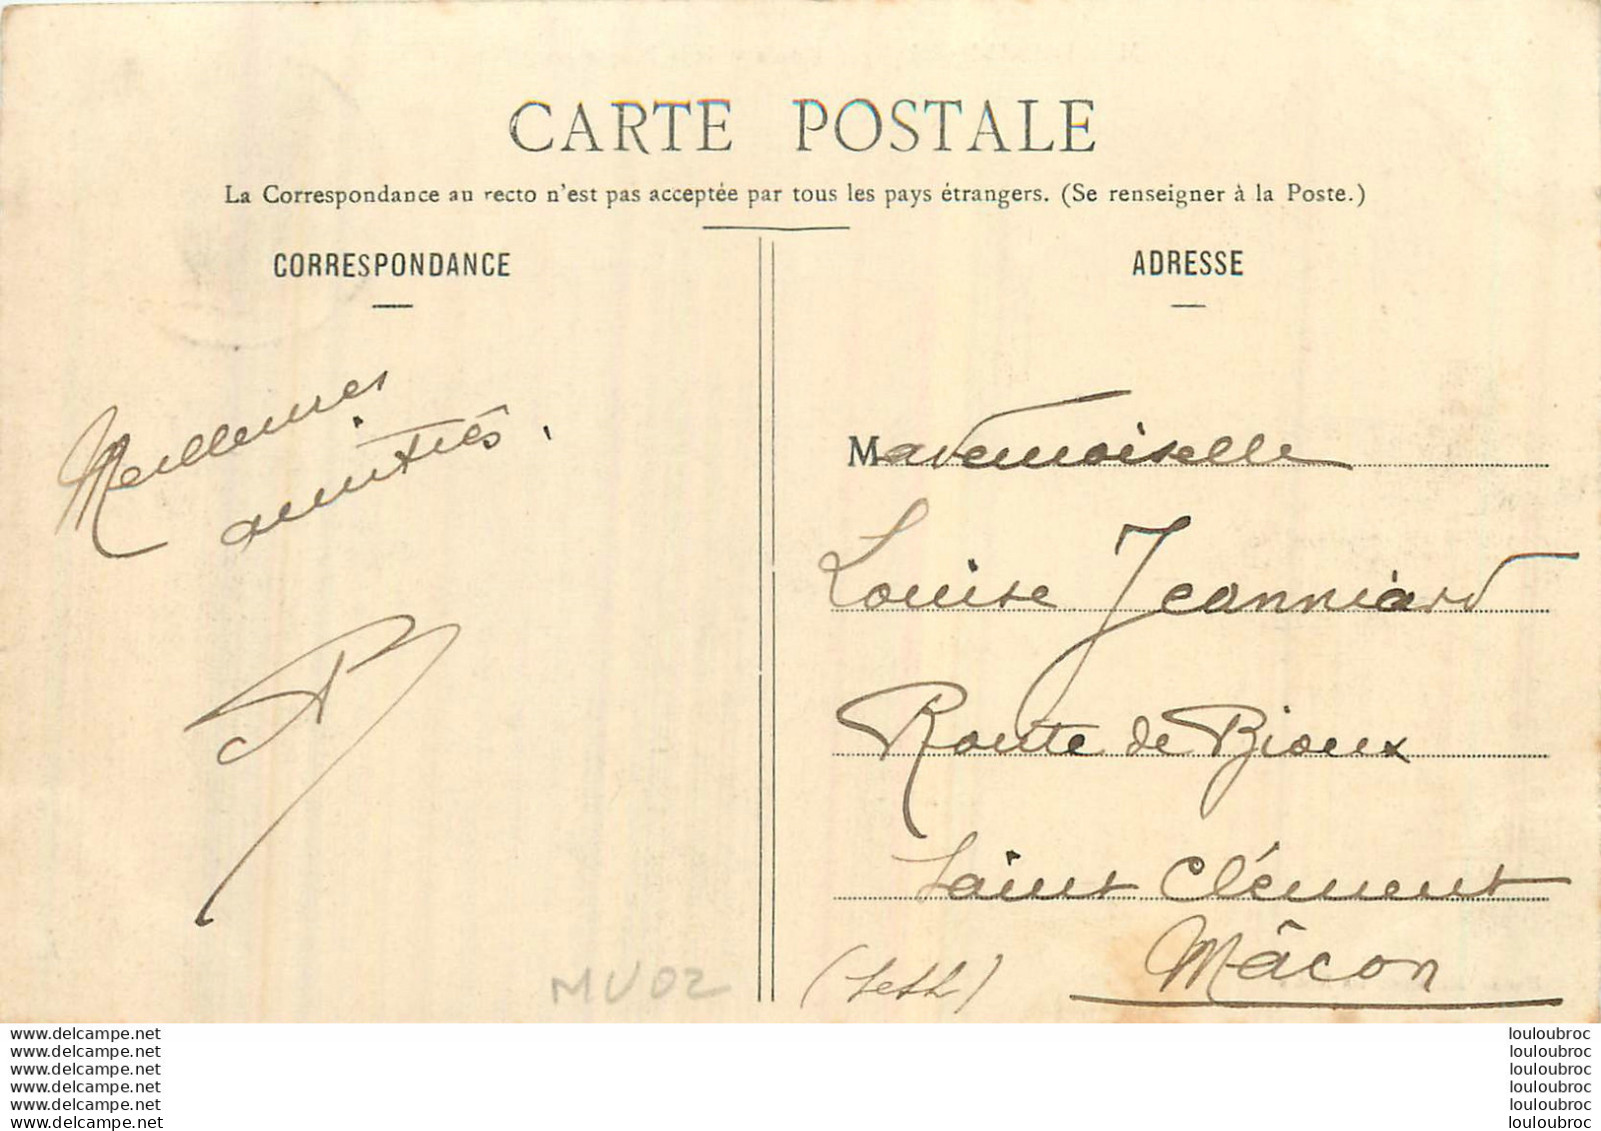 CARTE POSTALE
La Correspondance au recto n'est pas acceptée par tous les pays étrangers. (Se renseigner à la Poste.)
CORRESPONDANCE
Meilleures
amitiés.
MV02
ADRESSE
Mademoiselle
Louise Jeanniard
Route de Bioux
Saint Clément
Mâcon
www.delcampe.net
www.delcampe.net
www.delcampe.net
www.delcampe.net
www.delcampe.net
www.delcampe.net
louloubroc
louloubroc
louloubroc
louloubroc
louloubroc
louloubroc